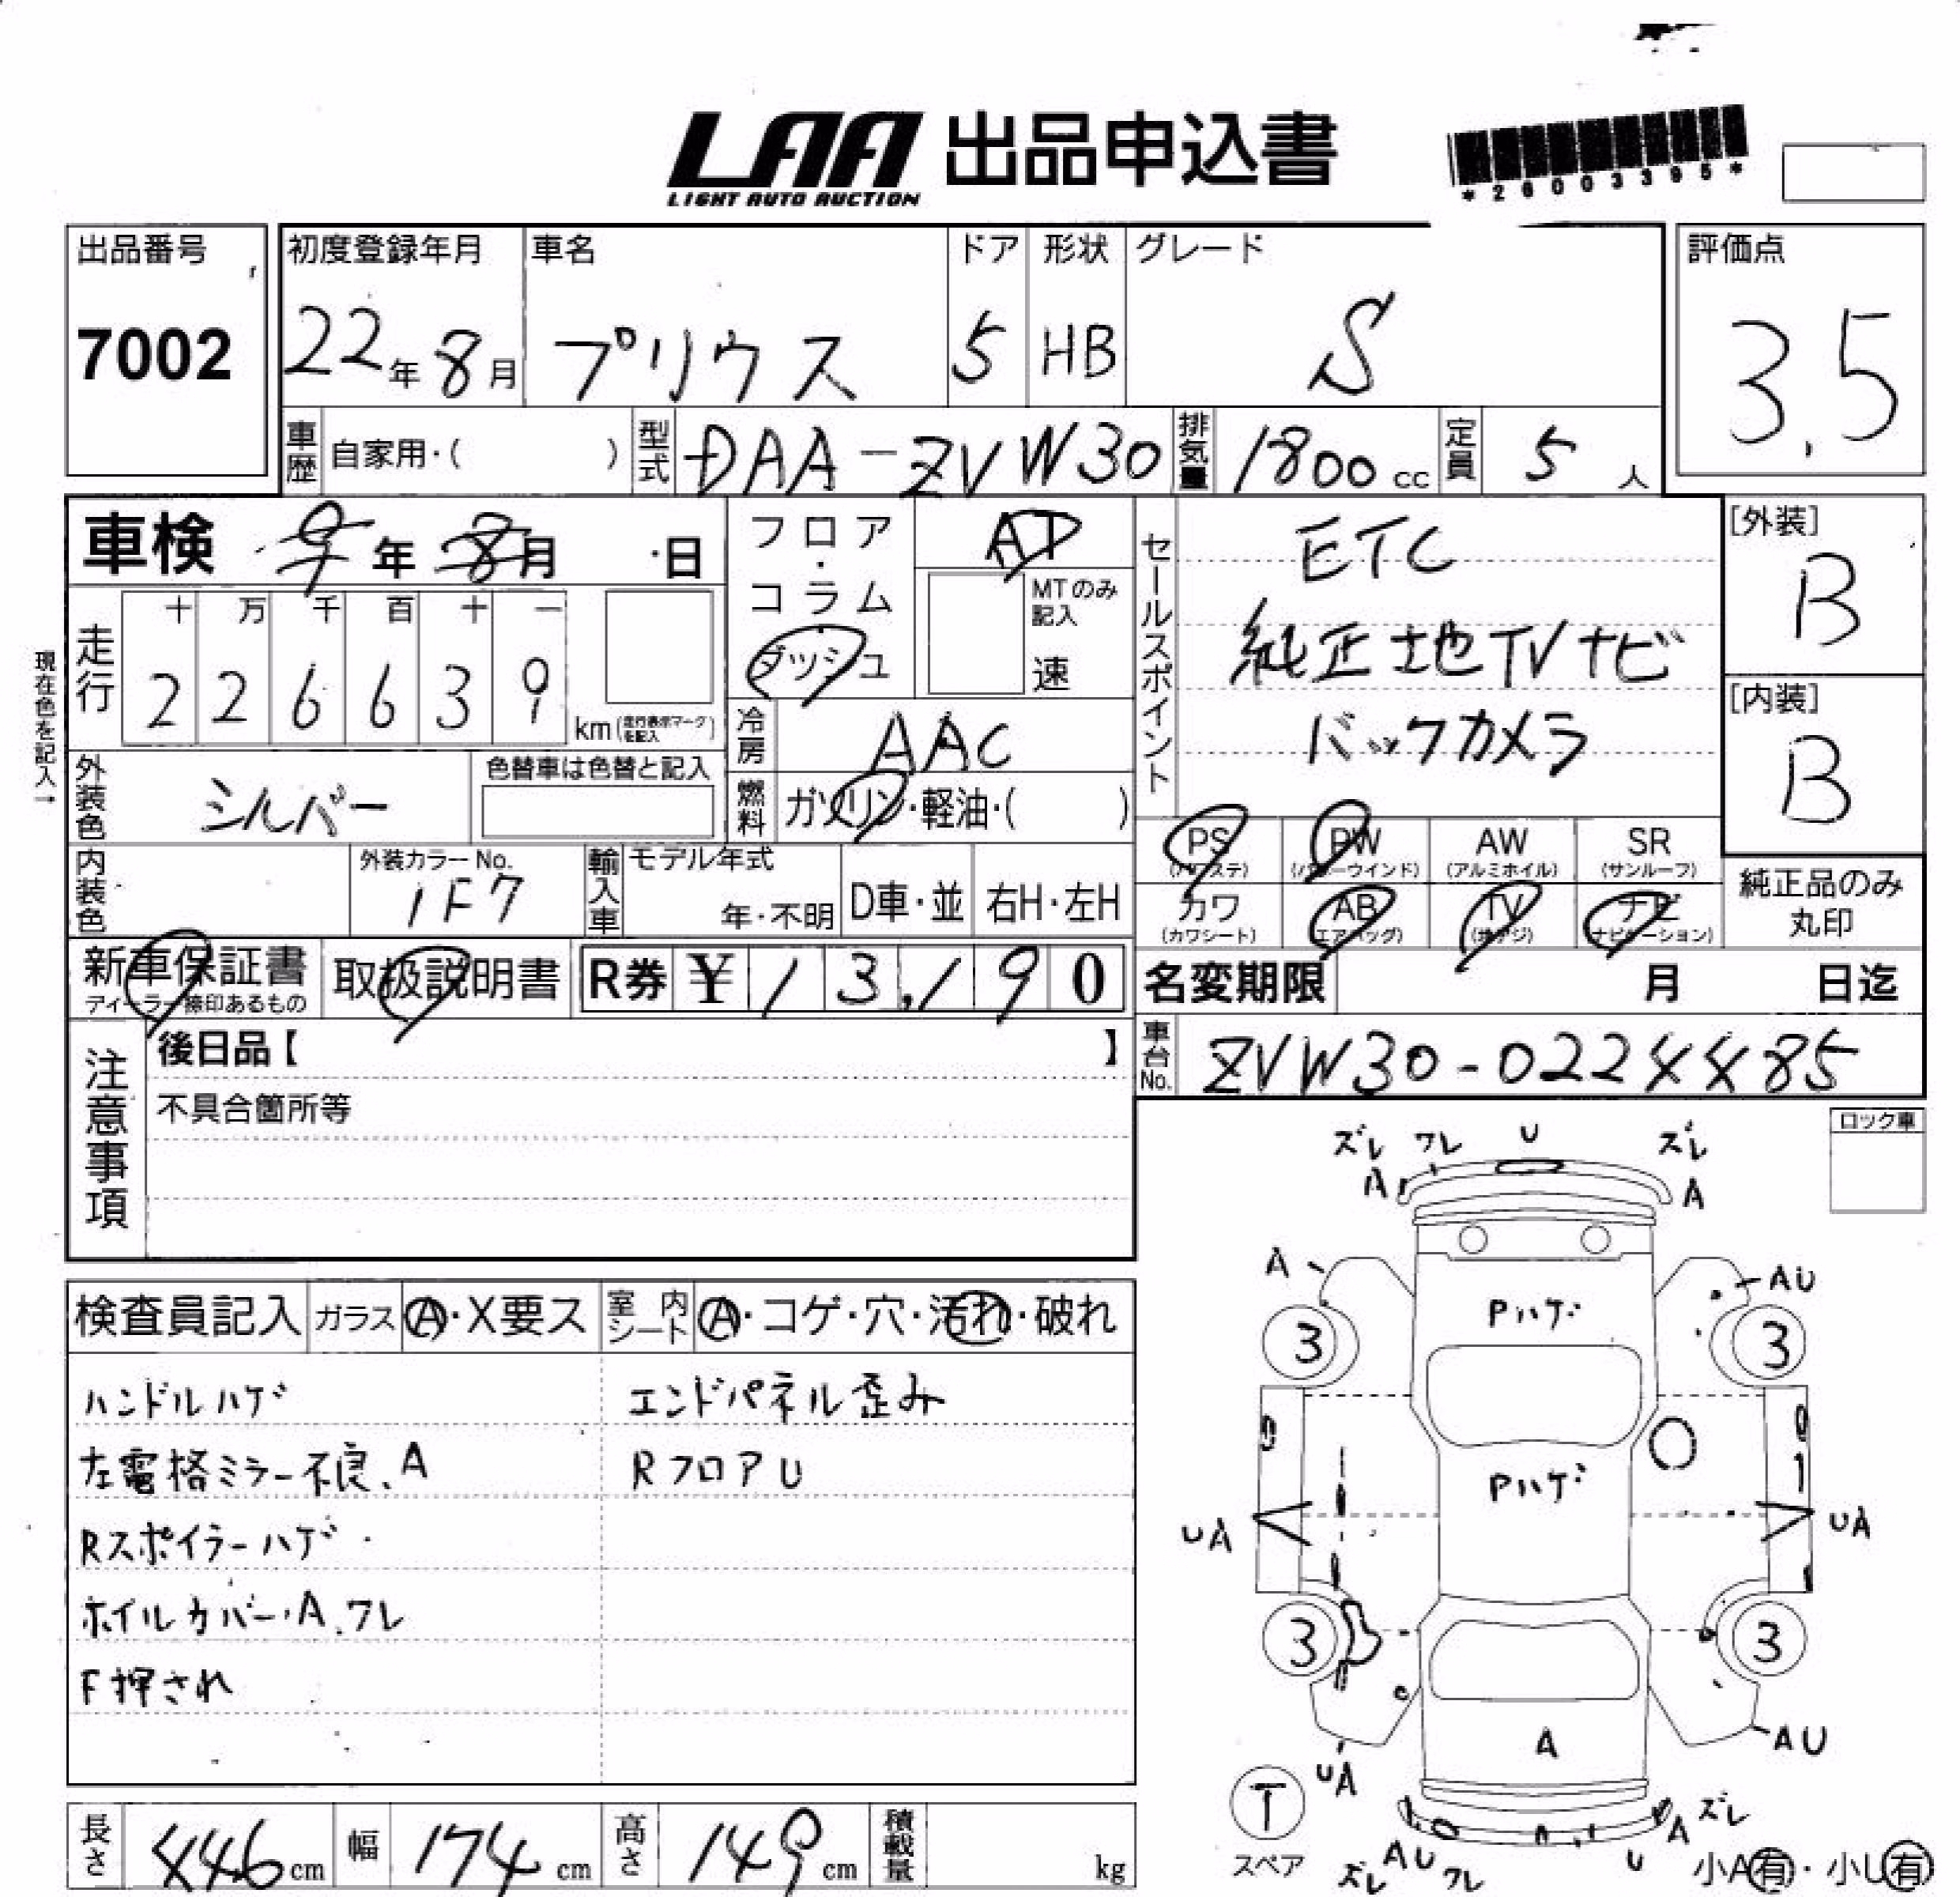 LAA 出品申込書
LIGHT AUTO AUCTION
*26003395*
出品番号 初度登録年月 車名 ドア 形状 グレード 評価点
7002 22年 8月 プリウス 5 HB S 3.5
車歴 自家用・( ) 型式 DAA-ZVW30 排気量 1800cc 定員 5人
車検 9年 8月 日
フロア・コラム・ダッシュ AT
MTのみ記入 速
セールスポイント
ETC
純正地TVナビ
バックカメラ
[外装]
B
[内装]
B
現在色を記入→
走行 十 万 千 百 十 一
2 2 6 6 3 9 km (走行表示マークを記入)
冷房 AAC
外装色 シルバー 色替車は色替と記入
燃料 ガソリン・軽油・( )
PS (パワステ) PW (パワーウインド) AW (アルミホイル) SR (サンルーフ)
カワ (カワシート) AB (エアバッグ) TV (地デジ) ナビ (ナビゲーション)
純正品のみ丸印
内装色 外装カラーNo. 1F7 輸入車 モデル年式 年・不明 D車・並 右H・左H
新車保証書 ディーラー捺印あるもの 取扱説明書 R券 ¥13,190
名変期限 月 日迄
注意事項 後日品【 】
不具合箇所等
車台No. ZVW30-0224485
ロック車
ズレ ワレ U ズレ
A A
A AU
Pハゲ
3 3
Pハゲ
UA UA
3 3
A
UA AU
T
スペア
ズレ AU ワレ U A ズレ
小A有・小U有
検査員記入 ガラス A・X要ス 室内シート A・コゲ・穴・汚れ・破れ
ハンドルハゲ エンドパネル歪み
左電格ミラー不良、A RフロアU
Rスポイラーハゲ
ホイルカバー・A、ワレ
F押され
長さ 446cm 幅 174cm 高さ 149cm 積載量 kg